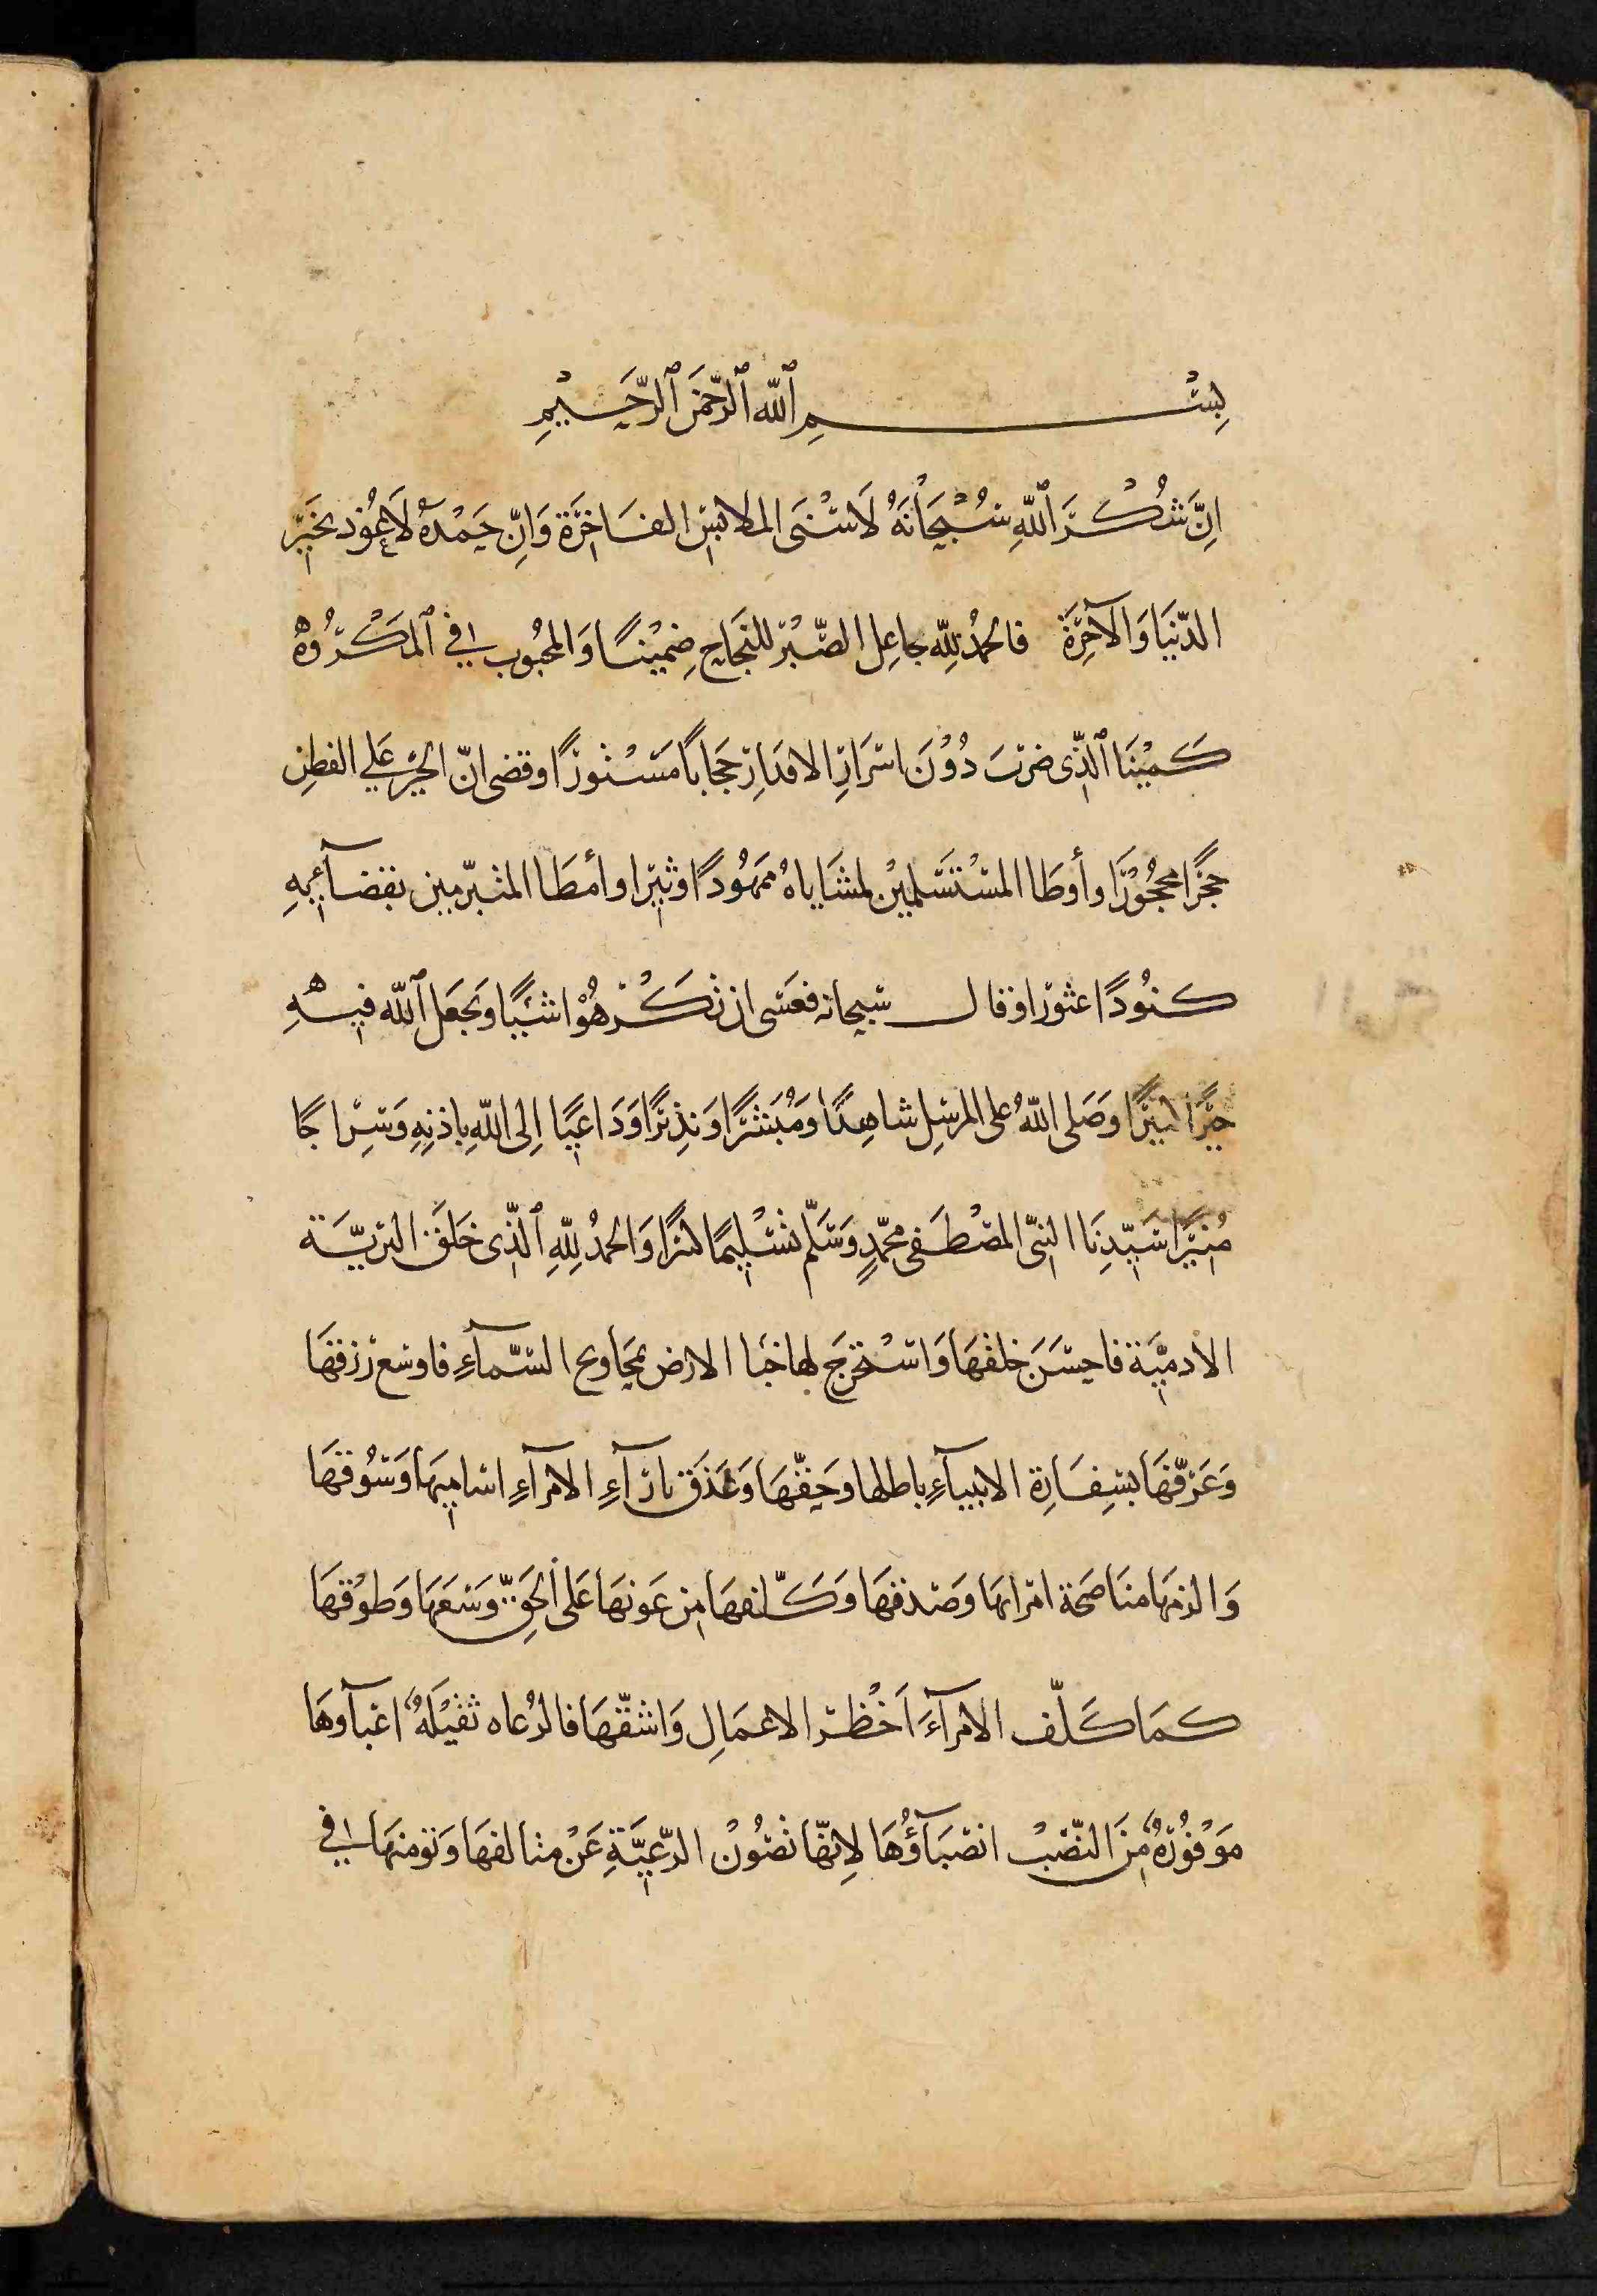 بِسْمِ ٱللّه ٱلرَّحْمَنِ ٱلرَّحَيْمِ
اِنَّ شُكْرَ ٱللّهِ سُبْحَانَهُ لَاسْنَى الملابس الفَاخِرَة وَاِنّ حَمْدهُ لَاعْوُد بخَيْر
الدّنيَا وَالآخِرَة فالحمْدُ لِلّه جاعِل الصَّبْر للنجَاح ضمِيْنًا وَالمحْبُوب في ٱلمكْرُوْهِ
كَمِيْنَا ٱلّذِى ضَربَ دُوْنَ اسْرَارِ الاقدَارِ حجَابًا مَسْتُورًا وقضى انّ الحَيْر علي الفطِن
حِجْرًا مَحْجُوْرًا وأوطَا المسْتَسْلمِيْن لمشَاياهُ ممَهُودًا وثيرًا وأمطَا المتبرّمين بقضآئِهِ
كنُودًا عثورًا وقال سبحانه فعَسَى ان تكْرهُوْا شيًا وَيجعَل ٱللّه فيْهِ
خيْرًا كثيرًا وَصَلى اللّهُ على المرسَل شاهِدًا وَمُبَشِّرًا وَنذِيرًا وَدَاعيًا اِلى اللّهِ باذنِهِ وَسِراجًا
مُنِيْرًا سَيّدِنَا النبيّ المصْطَفى محمّدٍ وَسَلّم تسْليمًا كثرًا وَالحمدُ لِلّهِ ٱلّذِى خَلَقَ البَريَّة
الادميَّة فاحسَنَ خلقهَا وَاسْتخرجَ لها خَبَا الارض بمجَاديح السّمآءِ فاوسَع رزقهَا
وَعَرّفهَا بسِفَارة الانبيآءِ باطلها وحَقّهَا وَعَذَق بارآءِ الامرآءِ اساميهَا وَسُوقهَا
وَالزمهَا منَاصَحَة امرَايهَا وصَدقهَا وَكَلّفهَا من عَونهَا عَلى الحَقّ وَسْعَهَا وَطوْقهَا
كمَا كَلّف الامرآءَ اَخْطَر الاعمَالِ وَاشقّهَا فالرُعاه ثقيْلَةٌ اعبآوهَا
مَوْفُوْرةٌ منَ النّصَبْ انصبَآؤُهَا لِانهّا تصُوْن الرّعيَّةِ عَنْ متالفهَا وَتومنهَا في